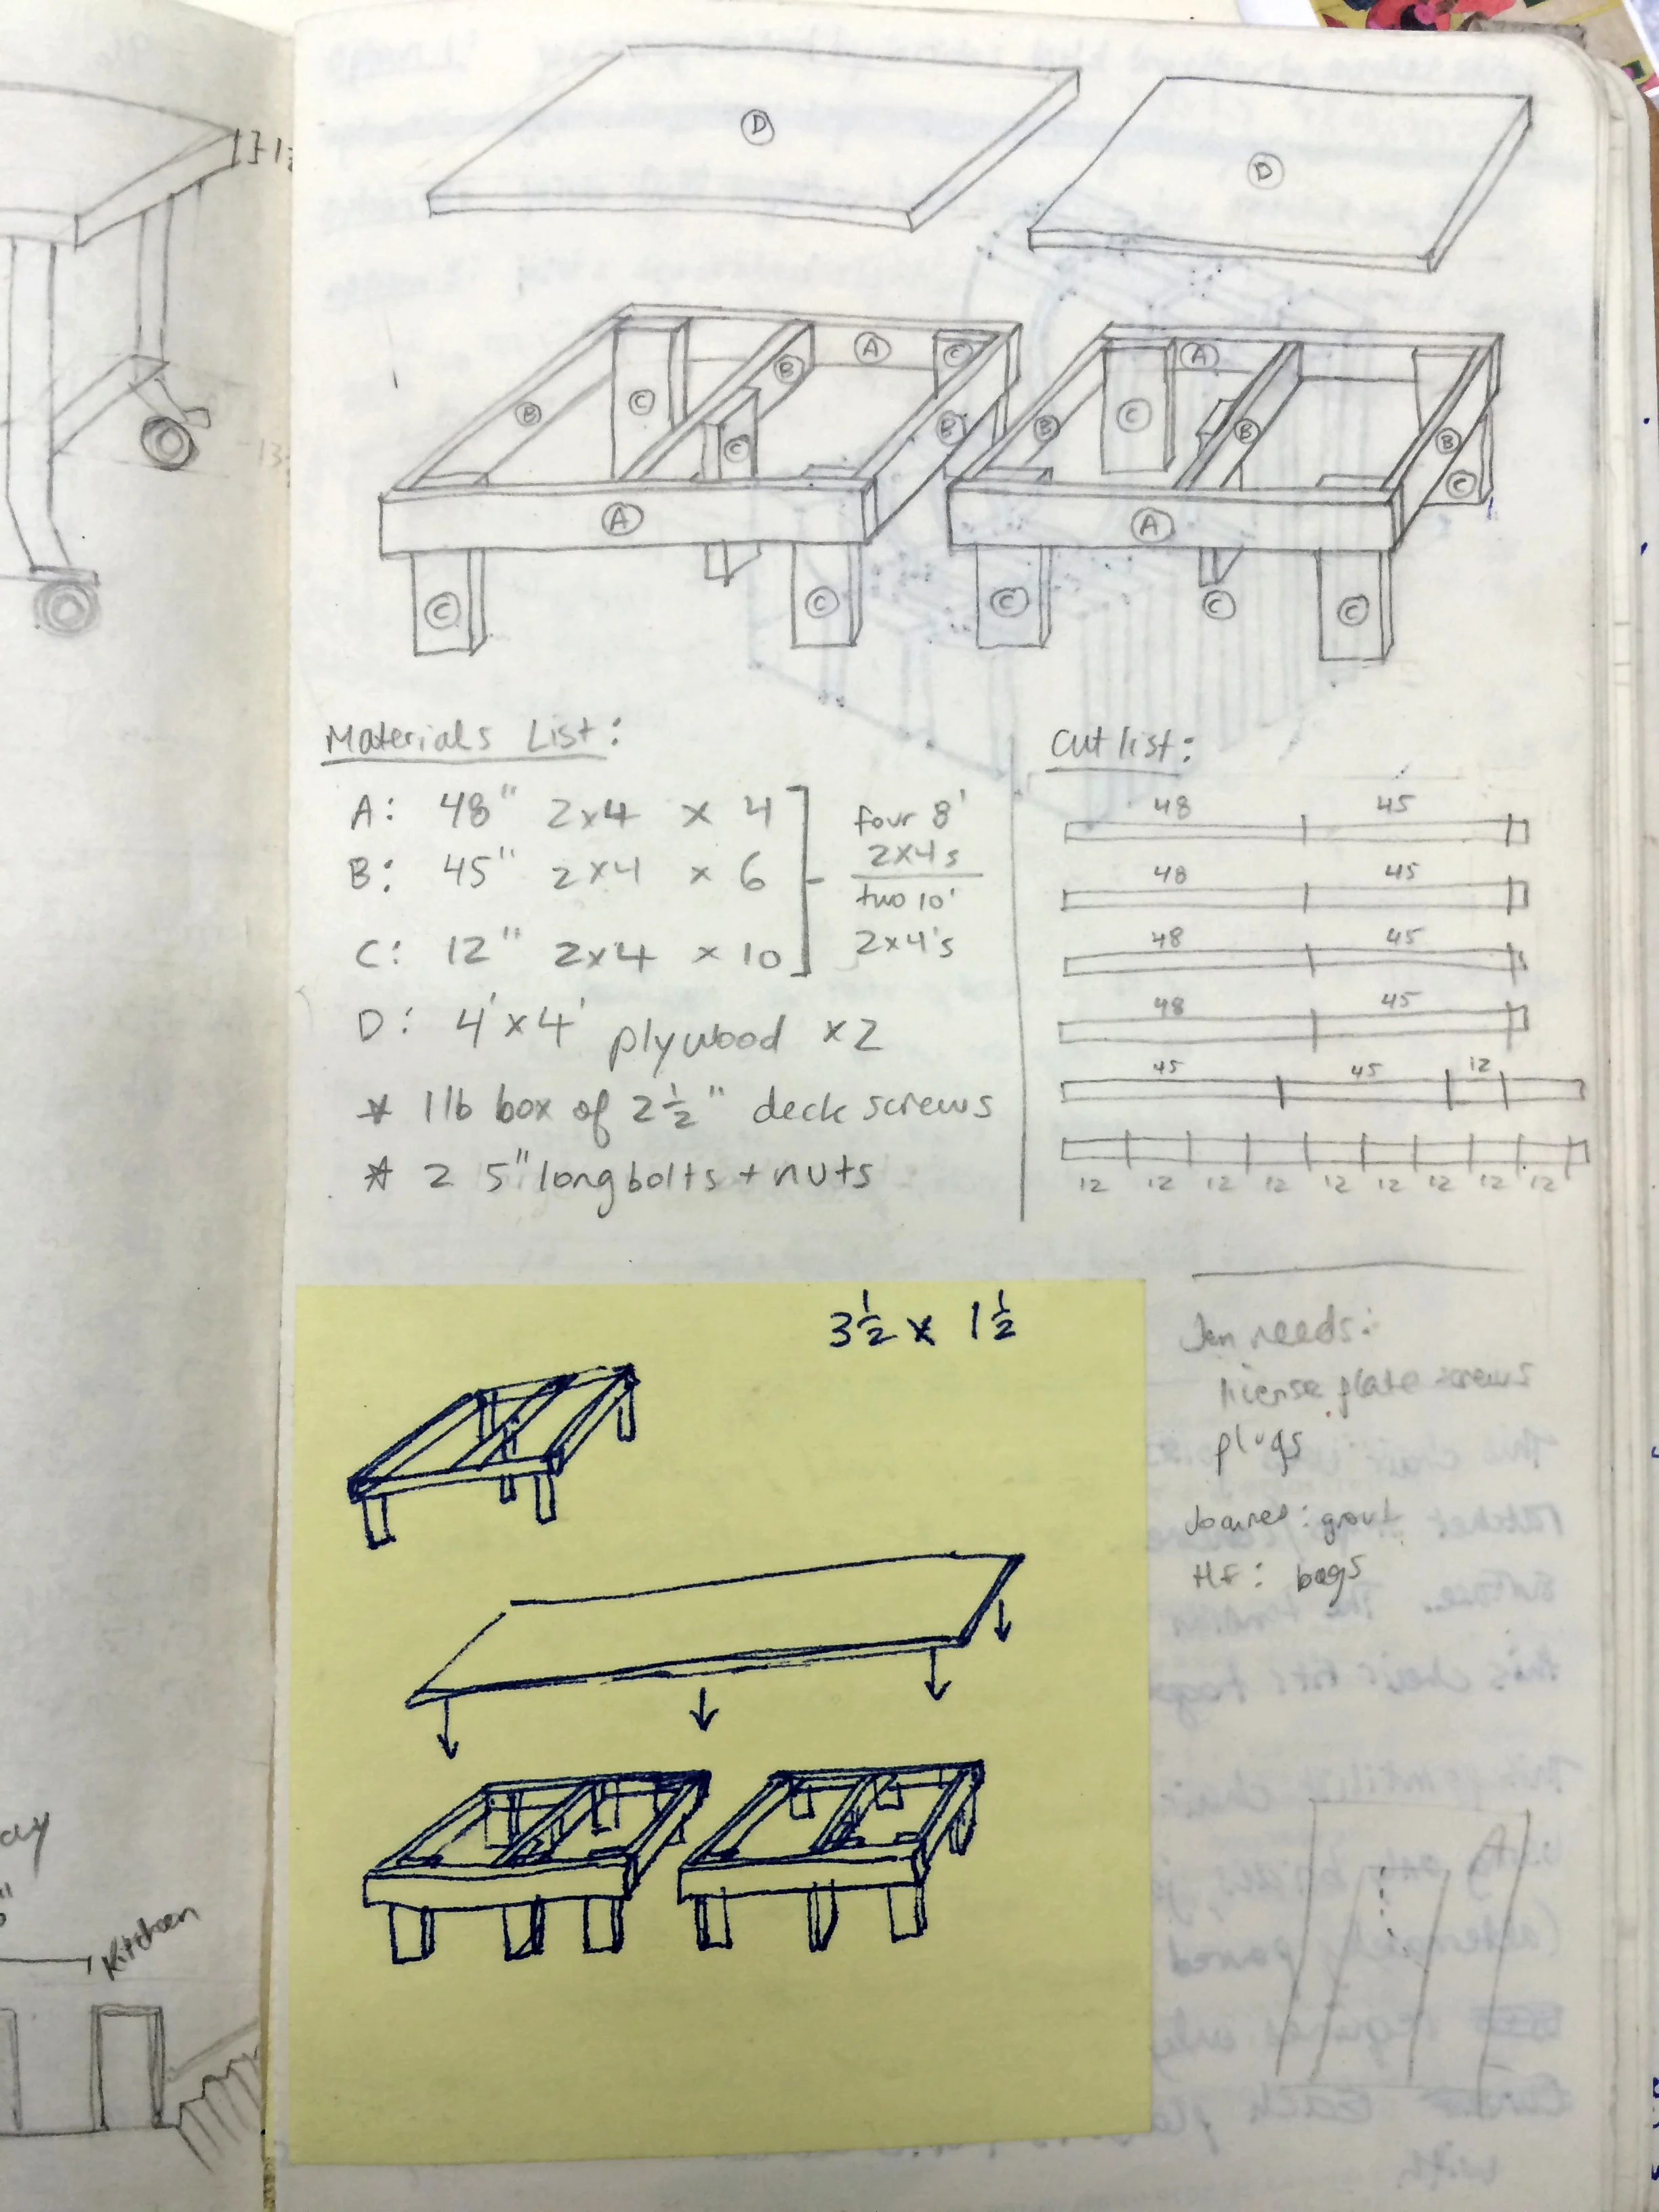 D
D
A
B
C
C
B
C
B
A
C
B
B
B
C
A
A
C
C
C
C
C
Materials List:
A: 48" 2x4 x 4
B: 45" 2x4 x 6
C: 12" 2x4 x 10
D: 4'x4' plywood x2
* 1 lb box of 2 1/2" deck screws
* 2 5" long bolts + nuts
four 8'
2x4s
two 10'
2x4's
Cut list:
48 45
48 45
48 45
48 45
45 45 12
12 12 12 12 12 12 12 12 12
3 1/2 x 1 1/2
Jen needs:
license plate screws
plugs
grout
HF: bags
Kitchen